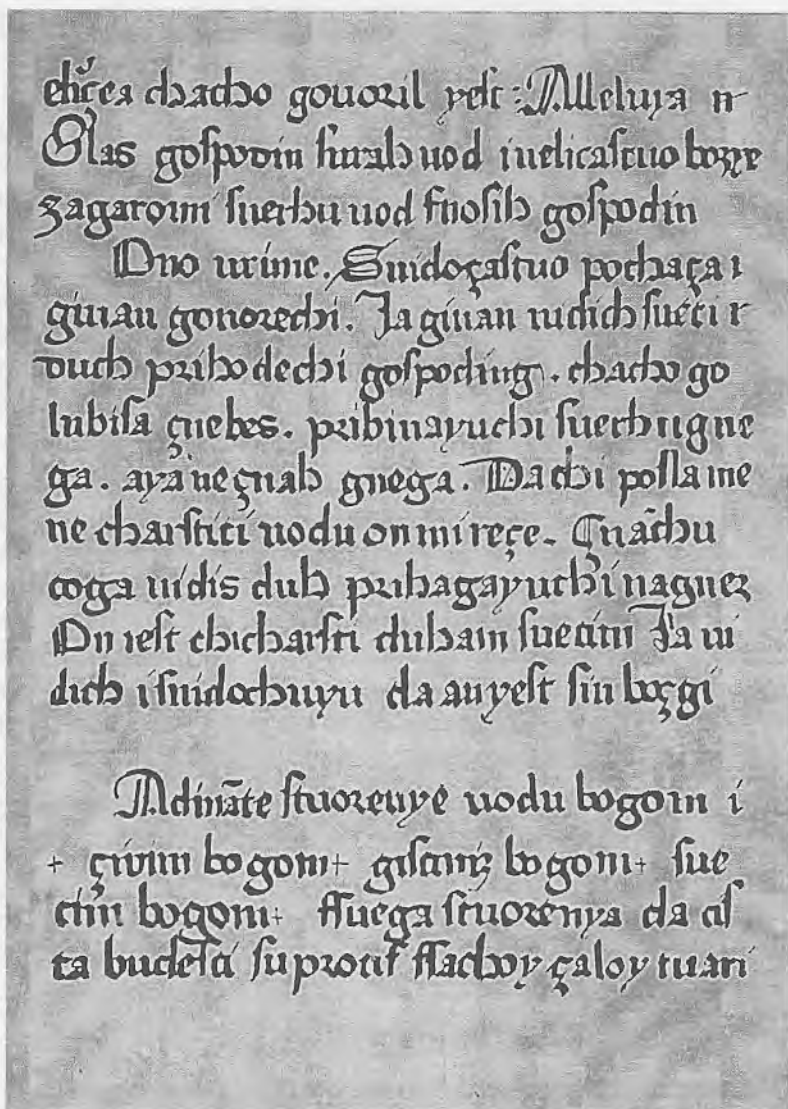 chacho gouoril yest : Alleluya
Glas gospodin surah uod iuelicastuo
zagaromi suerhu uod snosih gospodin
Ono urime. Suidoçastuo pochaça i
giuan gouorechi. Ja giuan uidich sueti
duch prihodechi gospoding. chacho go
lubisa çnebes. pribiuayuchi suerhu gne
ga. aya ne çnah gnega. Da chi posla me
ne charstiti uodu on mi reçe. Çnāchu
coga uidis duh prihagayuchi nagnez
On iest chi charsti duham suetim Ja ui
dich i suidochuyu da an yest sin boçgi
stuorenye uodu bogom i
+ çiuim bogom + bogom + sue
ctim bogom + ssuega stuorenya da
ta budesci ssachoy çaloy tuari